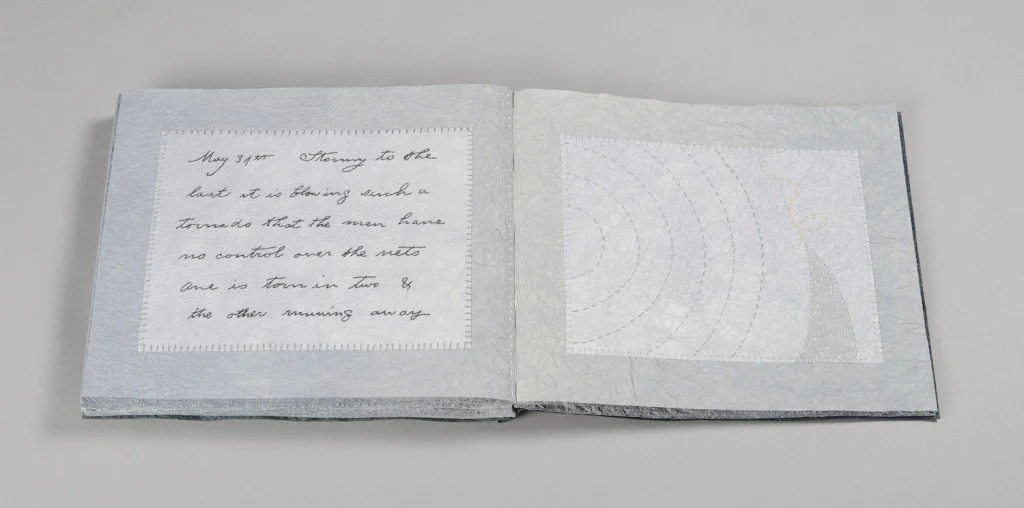 May 31st Stormy to the
last it is blowing such a
tornado that the men have
no control over the nets
one is torn in two &
the other running away